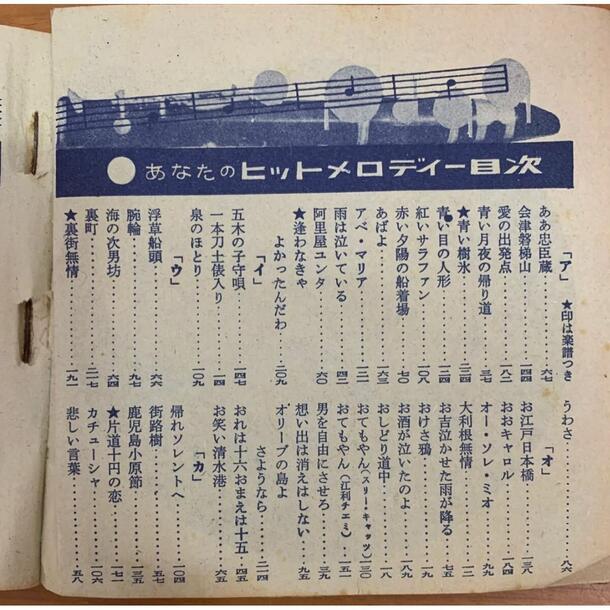 あなたのヒットメロディー目次
「ア」 ★印は楽譜つき
ああ忠臣蔵………六七
会津磐梯山………一四四
愛の出発点………一八二
青い月夜の帰り道………三七
★青い樹氷………
青い目の人形………
紅いサラファン………一〇八
赤い夕陽の船着場………七〇
あばよ………一六三
アベ・マリア………
雨は泣いている………四二
阿里屋ユンタ………六〇
★逢わなきゃ
よかったんだわ………二〇九
「イ」
五木の子守唄………一四七
一本刀土俵入り………四四
泉のほとり………一〇九
「ウ」
浮草船頭………六六
腕輪………九七
海の次男坊………六四
裏町………二一七
★裏街無情………一九一
うわさ………八六
「オ」
お江戸日本橋………一三八
おおキャロル………一八四
オー・ソレ・ミオ………九九
大利根無情………一二
お吉泣かせた雨が降る………七五
おけさ鴉………一九
お酒が泣いたのよ………
おしどり道中………一八
おてもやん(スリー・キャッツ)一三〇
おてもやん(江利チエミ)………一五一
男を自由にさせろ………三九
想い出は消えはしない………九五
オリーブの島よ
さようなら………二一四
おれは十六おまえは十五………四五
お笑い清水港………六五
「カ」
帰れソレントへ………一〇四
街路樹………五七
鹿児島小原節………一三五
★片道十円の恋………一七一
カチューシャ………一〇六
悲しい言葉………五八